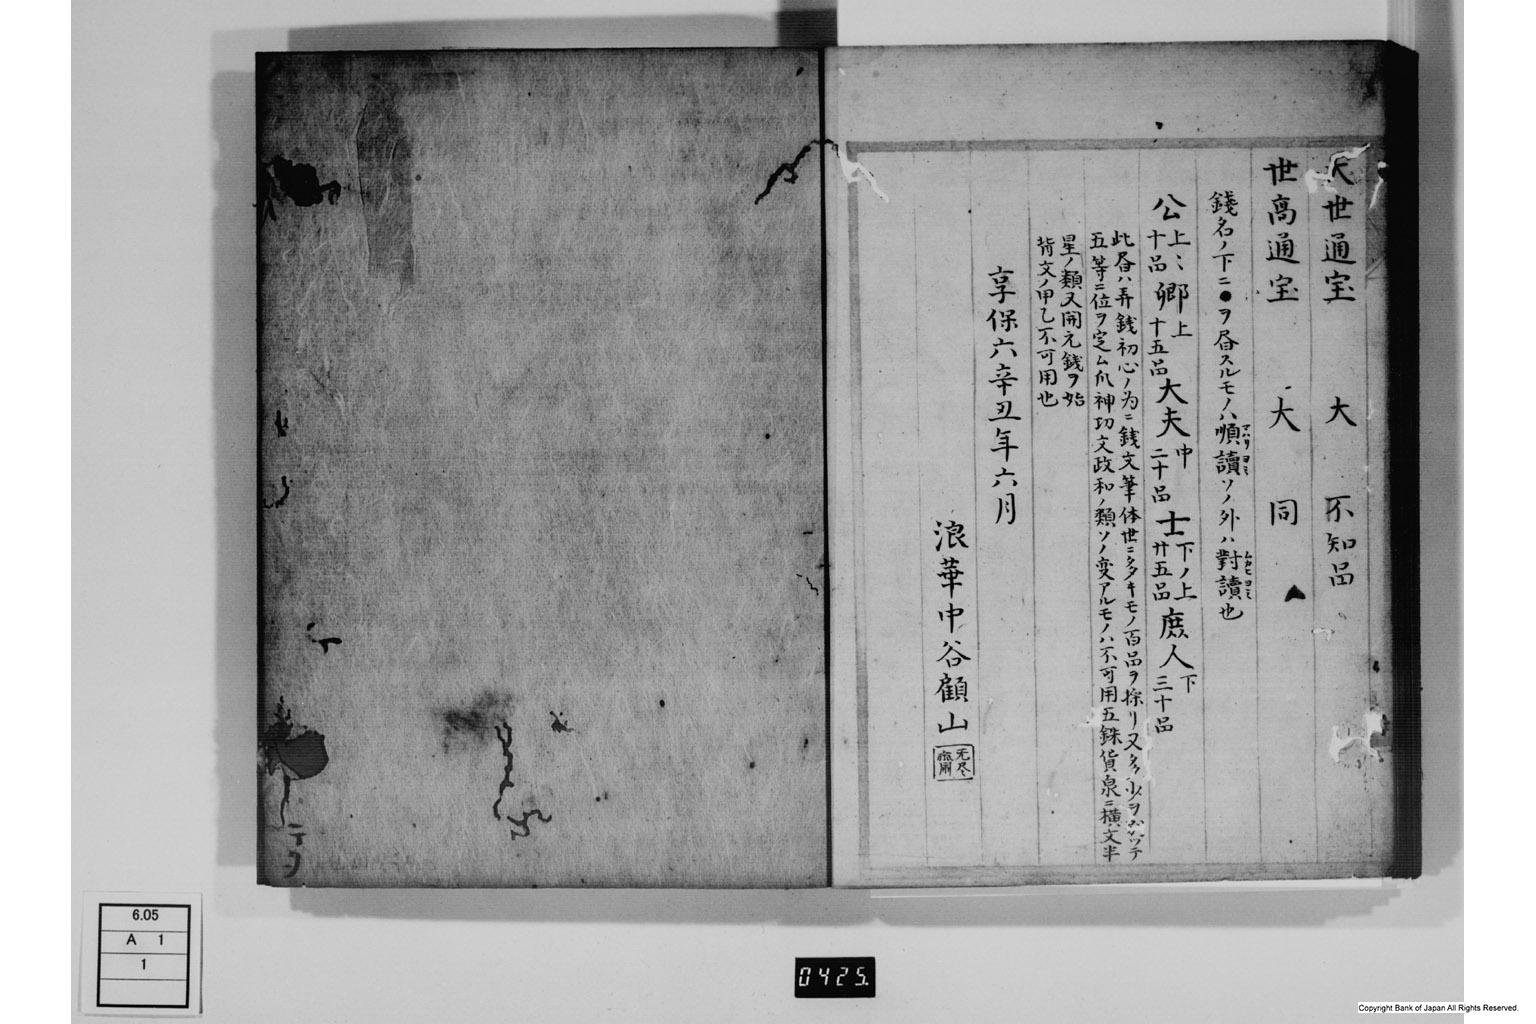 大世通宝 大 不知品
世高通宝 大 同
銭名ノ下ニ●ヲ昼スルモノハ順讀ソノ外ハ對讀也
公 上〻十品 卿 上十五品 大夫 中二十品 士 下ノ上廿五品 庶人 下三十品
此昼ハ弄銭初心ノ为ニ銭文筆体世ニ多キモノ百品ヲ採リ又多少ヲ以テ
五等ニ位ヲ定ム爪神功文政和ノ類ソノ変アルモノハ不可用五銖貨泉ニ横文半
星ノ類又開元銭ヲ始
背文ノ甲乙不可用也
享保六辛丑年六月
浪華中谷顧山
无尽
齋
テ
6.05
A 1
1
0425.
Copyright Bank of Japan All Rights Reserved.